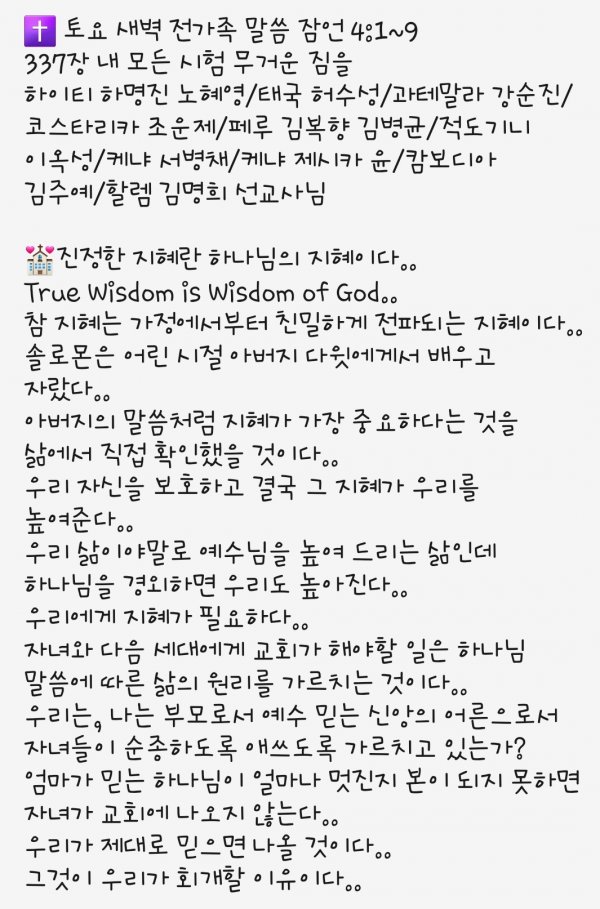 ✝️ 토요 새벽 전가족 말씀 잠언 4:1~9
337장 내 모든 시험 무거운 짐을
하이티 하명진 노혜영/태국 허수성/과테말라 강순진/
코스타리카 조운제/페루 김복향 김병균/적도기니
이옥성/케냐 서병채/케냐 제시카 윤/캄보디아
김주예/할렘 김명희 선교사님

💒진정한 지혜란 하나님의 지혜이다..
True Wisdom is Wisdom of God..
참 지혜는 가정에서부터 친밀하게 전파되는 지혜이다..
솔로몬은 어린 시절 아버지 다윗에게서 배우고
자랐다..
아버지의 말씀처럼 지혜가 가장 중요하다는 것을
삶에서 직접 확인했을 것이다..
우리 자신을 보호하고 결국 그 지혜가 우리를
높여준다..
우리 삶이야말로 예수님을 높여 드리는 삶인데
하나님을 경외하면 우리도 높아진다..
우리에게 지혜가 필요하다..
자녀와 다음 세대에게 교회가 해야할 일은 하나님
말씀에 따른 삶의 원리를 가르치는 것이다..
우리는, 나는 부모로서 예수 믿는 신앙의 어른으로서
자녀들이 순종하도록 애쓰도록 가르치고 있는가?
엄마가 믿는 하나님이 얼마나 멋진지 본이 되지 못하면
자녀가 교회에 나오지 않는다..
우리가 제대로 믿으면 나올 것이다..
그것이 우리가 회개할 이유이다..